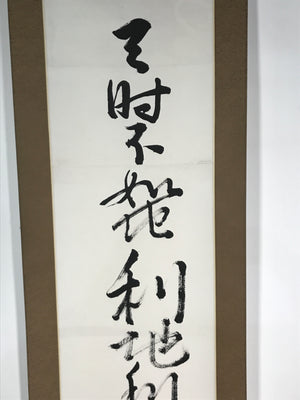 天時不如地利地利